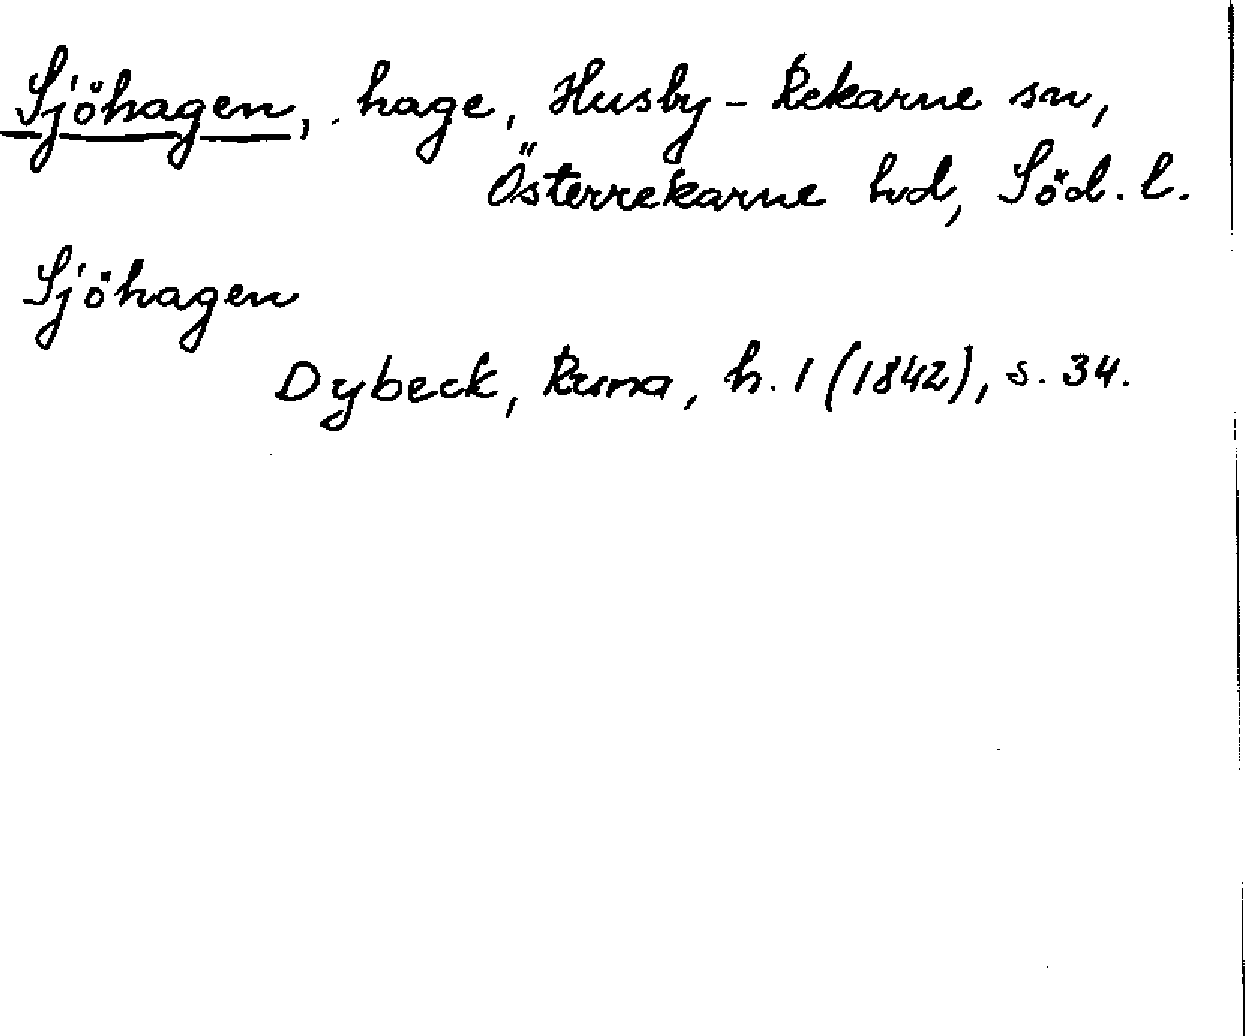 Sjöhagen, hage, Husby-Rekarne sn,
Österrekarne hd, Söd. l.
Sjöhagen
Dybeck, Runa, h. 1 (1842), s. 34.